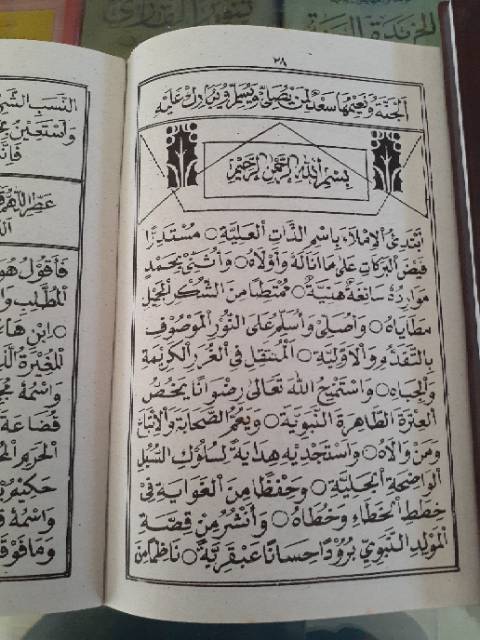 الخريدة البهية
٢٨
اَلْجَنَّةُ وَنَعِيْمُهَا سَعْدٌ لِمَنْ يُصَلِّيْ وَيُسَلِّمُ وَيُبَارِكُ عَلَيْهِ
بِسْمِ اللهِ الرَّحْمٰنِ الرَّحِيْمِ
اَبْتَدِئُ الْاِمْلَاءَ بِاسْمِ الذَّاتِ الْعَلِيَّةِ ○ مُسْتَدِرًّا
فَيْضَ الْبَرَكَاتِ عَلٰى مَا اَنَالَهُ وَاَوْلَاهُ ○ وَاُثَنِّيْ بِحَمْدٍ
مَوَارِدُهُ سَائِغَةٌ هَنِيَّةٌ ○ مُمْتَطِيًا مِنَ الشُّكْرِ الْجَمِيْلِ
مَطَايَاهُ ○ وَاُصَلِّيْ وَاُسَلِّمُ عَلَى النُّوْرِ الْمَوْصُوْفِ
بِالتَّقَدُّمِ وَالْاَوَّلِيَّةِ ○ اَلْمُنْتَقِلِ فِي الْغُرَرِ الْكَرِيْمَةِ
وَالْجِبَاهِ ○ وَاَسْتَمْنِحُ اللهَ تَعَالٰى رِضْوَانًا يَخُصُّ
الْعِتْرَةَ الطَّاهِرَةَ النَّبَوِيَّةَ ○ وَيَعُمُّ الصَّحَابَةَ وَالْاَتْبَاعَ
وَمَنْ وَالَاهُ ○ وَاَسْتَجْدِيْهِ هِدَايَةً لِسُلُوْكِ السُّبُلِ
الْوَاضِحَةِ الْجَلِيَّةِ ○ وَحِفْظًا مِنَ الْغَوَايَةِ فِيْ
خِطَطِ الْخَطَاءِ وَخُطَاهُ ○ وَاَنْشُرُ مِنْ قِصَّةِ
الْمَوْلِدِ النَّبَوِيِّ بُرُوْدًا حِسَانًا عَبْقَرِيَّةً ○ نَاظِمًا مِنَ
النَّسَبِ
وَاَسْتَعِيْنُ
عَطِّرِ اللّٰهُمَّ
فَاَقُوْلُ هُوَ
الْمُطَّلِبِ
○ ابْنِ
الْمُغِيْرَةُ
وَاسْمُهُ
قُضَاعَةَ
الْحَرَمِ
حَكِيْمٌ
وَاسْمُهُ
وَمَا فَوْقَهُ